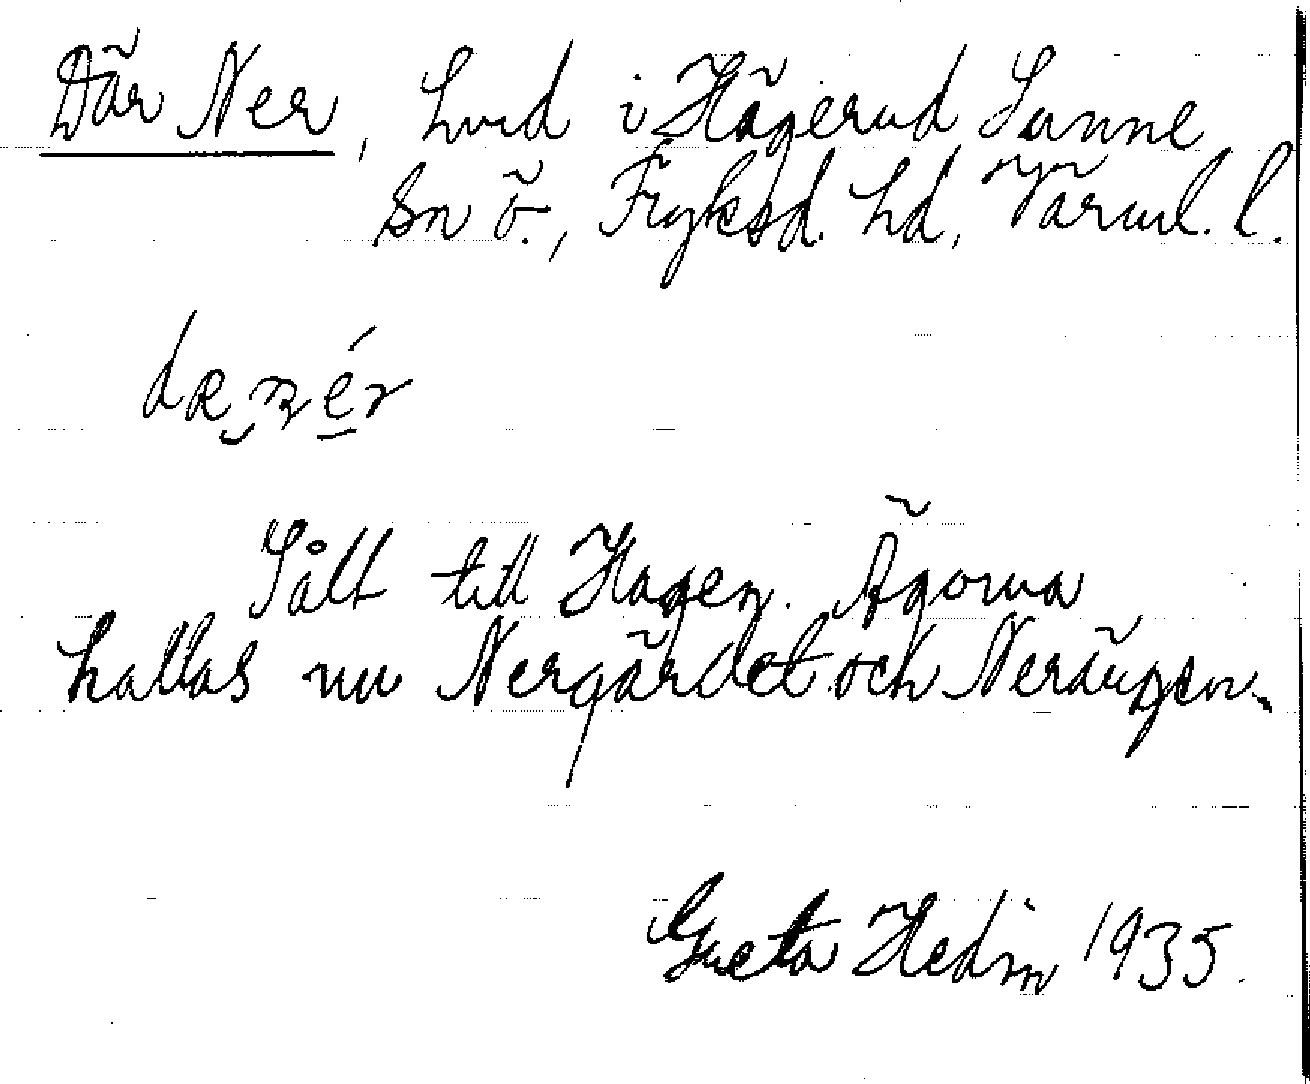 Där Ner, hmd i Hägerud Sunne
Sn ö., Fryksd. hd, Värml. l.
Sålt till Hagen. Ägorna
kallas nu Nergärdet och Nerängen.
Greta Hedin 1935.